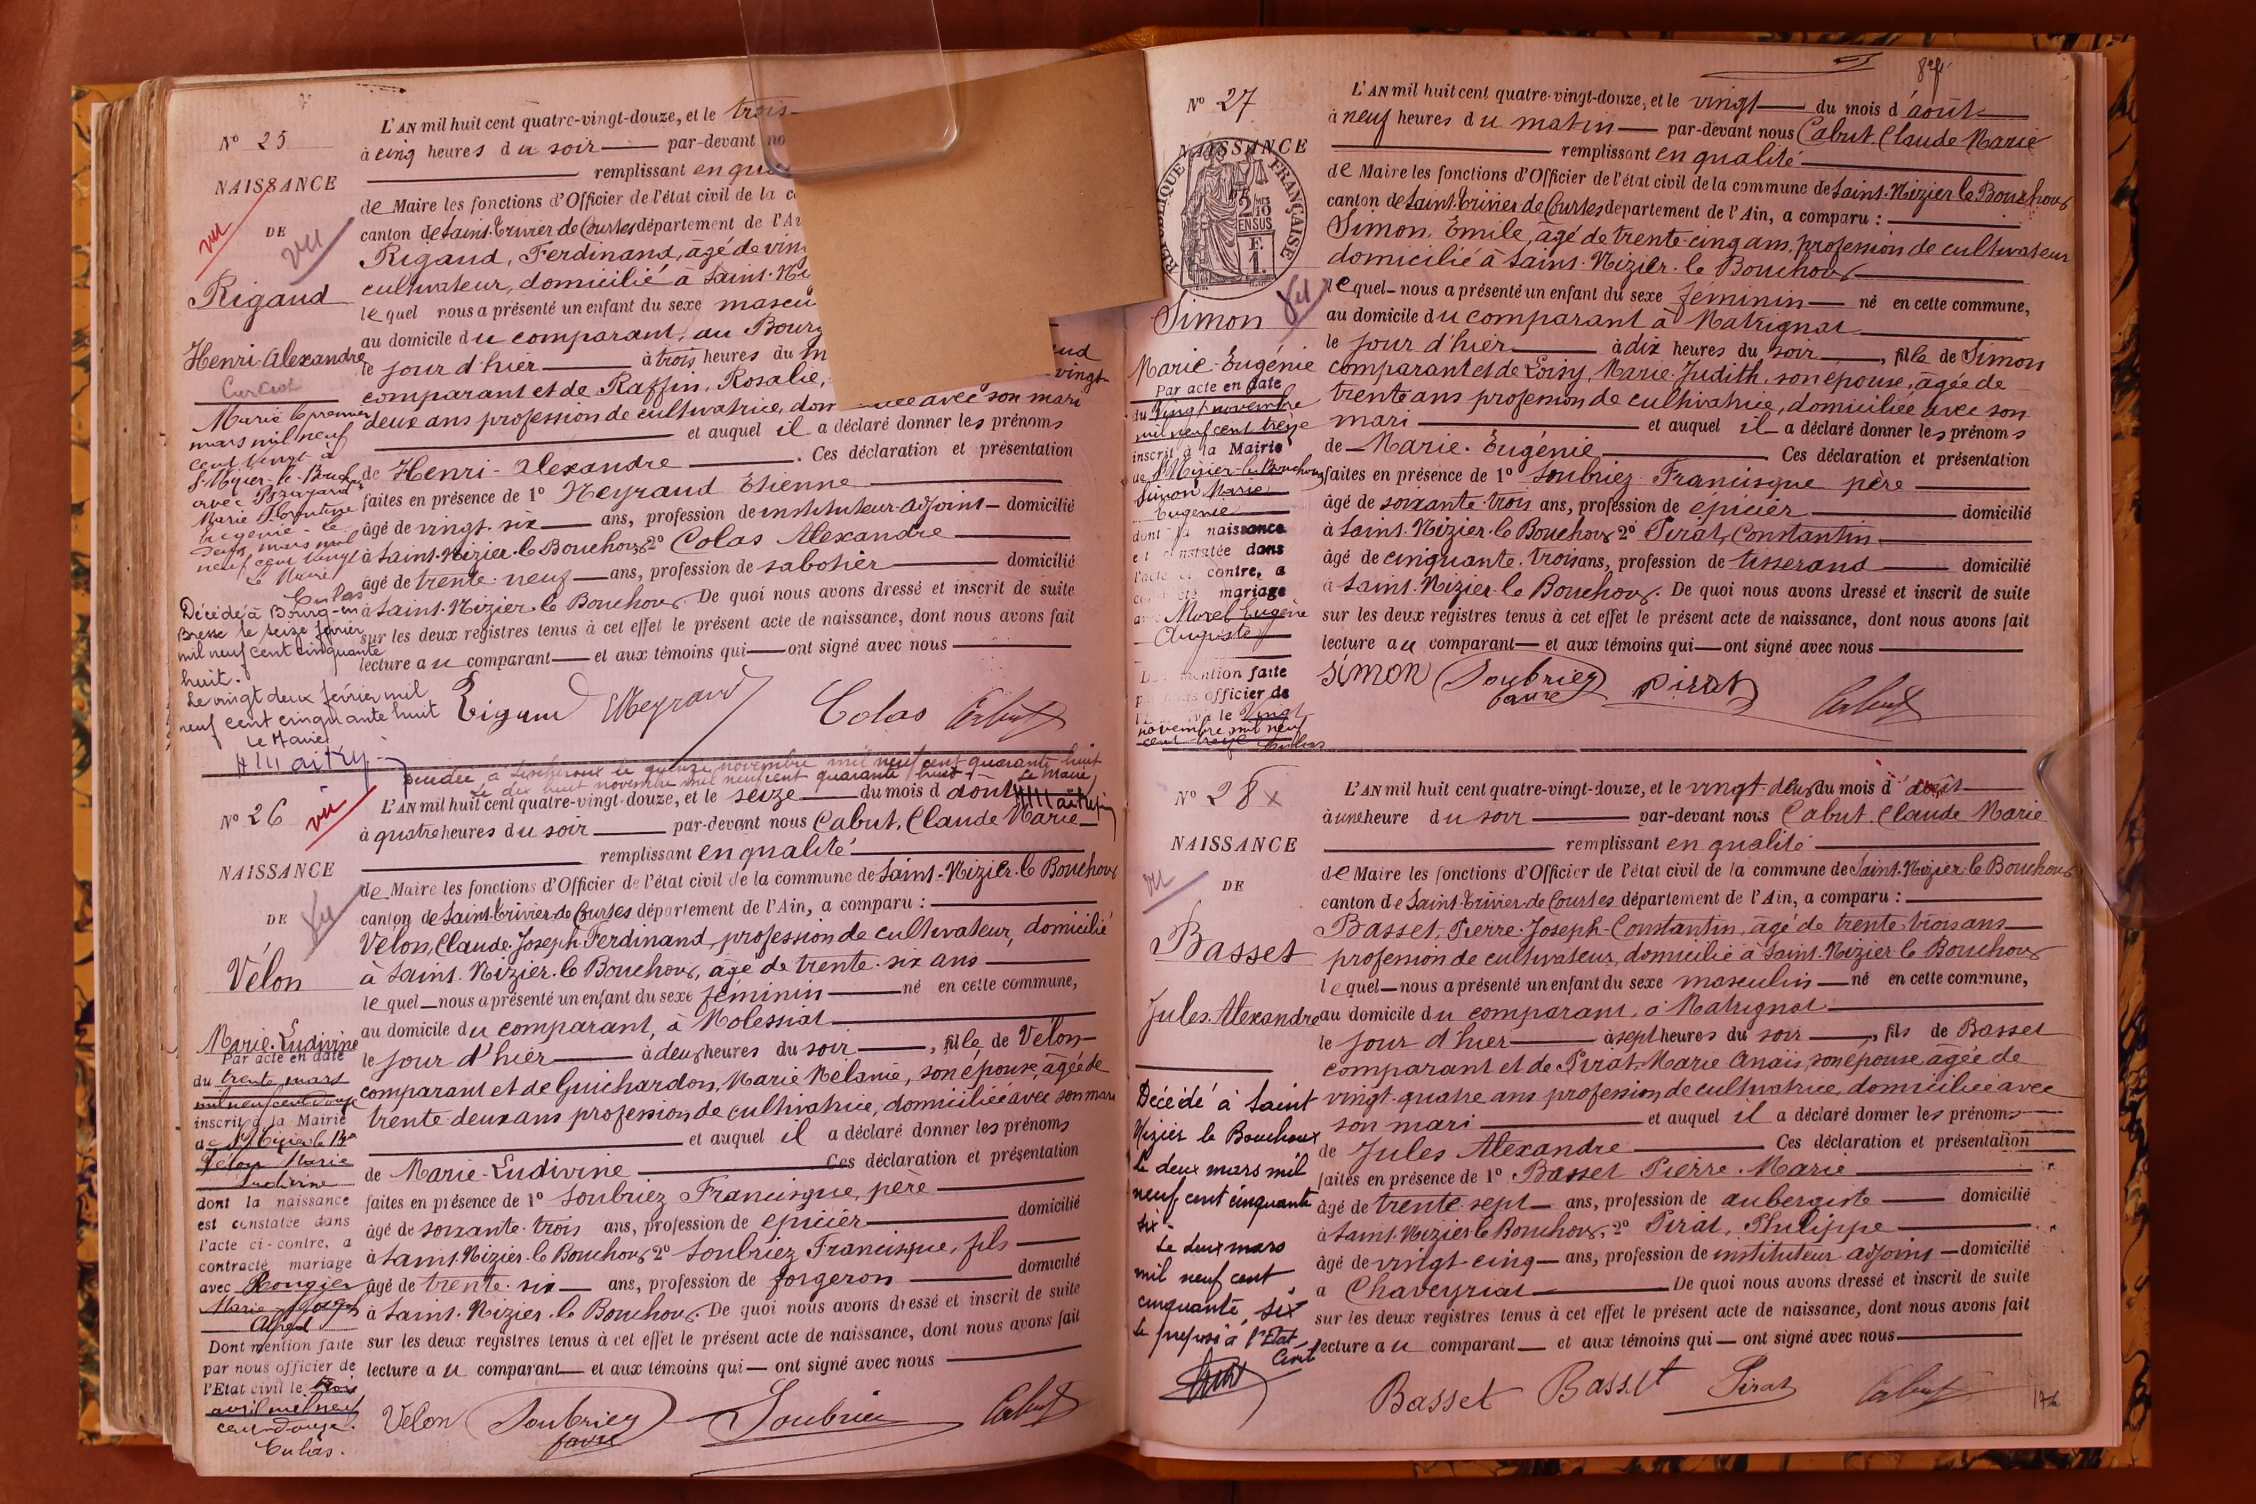 N° 25
NAISSANCE
DE
vu
vu
Rigaud
Henri Alexandre
Marié le premier
mars mil neuf
cent vingt à
St-Nizier-le-Bouchoux
avec
Marie Florentine
neuf cent vingt
Le Maire
Culas
Décédé à Bourg-en
Bresse le seize février
mil neuf cent cinquante
huit.
Le vingt deux février mil
neuf cent cinquante huit
Le Maire
L'AN mil huit cent quatre-vingt-douze, et le trois
à cinq heures du soir par-devant no
remplissant en qua
de Maire les fonctions d'Officier de l'état civil de la c
canton de Saint-Trivier de Courtes département de l'A
Rigaud, Ferdinand, âgé de vin
cultivateur, domicilié à Saint-Ni
lequel nous a présenté un enfant du sexe mascu
au domicile du comparant, au Bourg
le jour d'hier à trois heures du m
comparant et de Raffin, Rosalie, vingt-
deux ans profession de cultivatrice, dom avec son mari
et auquel il a déclaré donner les prénoms
de Henri-Alexandre . Ces déclaration et présentation
faites en présence de 1° Neyraud Etienne
âgé de vingt-six ans, profession de instituteur-adjoint domicilié
à Saint-Nizier-le-Bouchoux 2° Colas Alexandre
âgé de trente-neuf ans, profession de sabotier domicilié
à Saint-Nizier-le-Bouchoux. De quoi nous avons dressé et inscrit de suite
sur les deux registres tenus à cet effet le présent acte de naissance, dont nous avons fait
lecture au comparant et aux témoins qui ont signé avec nous
Rigaud ENeyraud Colas Cabut
décédée à Lescheroux le quinze novembre mil neuf cent quarante huit
Le dix huit novembre mil neuf cent quarante huit - Le Maire,
N° 26
vu
NAISSANCE
DE
vu
Vélon
Marie-Ludivine
Par acte en date
du trente mars
mil neuf cent douze
inscrit à la Mairie
de St Nizier le Bx
Vélon Marie
Ludivine
dont la naissance
est constatée dans
l'acte ci-contre, a
contracté mariage
avec Rougier
Marie Joseph
Alfred
Dont mention faite
par nous officier de
l'Etat civil le trois
avril mil neuf
cent douze.
Culas.
L'AN mil huit cent quatre-vingt-douze, et le seize du mois d'août
à quatre heures du soir par-devant nous Cabut, Claude Marie
remplissant en qualité
de Maire les fonctions d'Officier de l'état civil de la commune de Saint-Nizier-le Bouchoux
canton de Saint-Trivier-de Courtes département de l'Ain, a comparu :
Vélon, Claude-Joseph-Ferdinand, profession de cultivateur, domicilié
à Saint-Nizier-le Bouchoux, âgé de trente-six ans
lequel nous a présenté un enfant du sexe féminin né en cette commune,
au domicile du comparant, à Molessiat
le jour d'hier à deux heures du soir , fille de Vélon
comparant et de Guichardon, Marie Mélanie, son épouse, âgée de
trente deux ans profession de cultivatrice, domiciliée avec son mari
et auquel il a déclaré donner les prénoms
de Marie-Ludivine Ces déclaration et présentation
faites en présence de 1° Soubriez Francisque, père
âgé de soixante-trois ans, profession de épicier domicilié
à Saint-Nizier-le Bouchoux 2° Soubriez Francisque, fils
âgé de trente-six ans, profession de forgeron domicilié
à Saint-Nizier-le Bouchoux. De quoi nous avons dressé et inscrit de suite
sur les deux registres tenus à cet effet le présent acte de naissance, dont nous avons fait
lecture au comparant et aux témoins qui ont signé avec nous
Velon Soubriez Soubriez Cabut
favre
N° 27
NAISSANCE
RÉPUBLIQUE FRANÇAISE
vu
Simon
Marie-Eugénie
Par acte en date
du vingt novembre
mil neuf cent treize
inscrit à la Mairie
de St Nizier-le-Bouchoux
Simon Marie
Eugénie
dont la naissance
est constatée dans
l'acte ci-contre, a
contracté mariage
avec Morel Eugène
Auguste
Dont mention faite
par nous officier de
l'Etat civil le vingt
novembre mil neuf
cent treize Culas
L'AN mil huit cent quatre-vingt-douze, et le vingt du mois d'août
à neuf heures du matin par-devant nous Cabut, Claude Marie
remplissant en qualité
de Maire les fonctions d'Officier de l'état civil de la commune de Saint-Nizier le Bouchoux
canton de Saint-Trivier de Courtes département de l'Ain, a comparu :
Simon, Emile, âgé de trente-cinq ans, profession de cultivateur
domicilié à Saint-Nizier-le Bouchoux
lequel nous a présenté un enfant du sexe féminin né en cette commune,
au domicile du comparant à Matrignat
le jour d'hier à dix heures du soir , fille de Simon
comparant et de Loisy, Marie-Judith, son épouse, âgée de
trente ans profession de cultivatrice, domiciliée avec son
mari et auquel il a déclaré donner les prénoms
de Marie-Eugénie Ces déclaration et présentation
faites en présence de 1° Soubriez Francisque père
âgé de soixante-trois ans, profession de épicier domicilié
à Saint-Nizier-le Bouchoux 2° Pirat, Constantin
âgé de cinquante-trois ans, profession de tisserand domicilié
à Saint-Nizier le Bouchoux. De quoi nous avons dressé et inscrit de suite
sur les deux registres tenus à cet effet le présent acte de naissance, dont nous avons fait
lecture au comparant et aux témoins qui ont signé avec nous
Simon Soubriez Pirat Cabut
favre
N° 28
NAISSANCE
vu
DE
Basset
Jules Alexandre
Décédé à Saint
Nizier le Bouchoux
le deux mars mil
neuf cent cinquante
six -
Le deux mars
mil neuf cent
cinquante, six
Le préposé à l'Etat
Civil
L'AN mil huit cent quatre-vingt-douze, et le vingt-deux du mois d'août
à une heure du soir par-devant nous Cabut, Claude Marie
remplissant en qualité
de Maire les fonctions d'Officier de l'état civil de la commune de Saint-Nizier-le Bouchoux
canton de Saint-Trivier-de Courtes département de l'Ain, a comparu :
Basset, Pierre-Joseph-Constantin, âgé de trente-trois ans
profession de cultivateur, domicilié à Saint-Nizier le Bouchoux
lequel nous a présenté un enfant du sexe masculin né en cette commune,
au domicile du comparant, à Matrignat
le jour d'hier à sept heures du soir , fils de Basset
comparant et de Pirat, Marie Anaïs, son épouse âgée de
vingt-quatre ans profession de cultivatrice, domiciliée avec
son mari et auquel il a déclaré donner les prénoms
de Jules Alexandre Ces déclaration et présentation
faites en présence de 1° Basset Pierre-Marie
âgé de trente-sept ans, profession de aubergiste domicilié
à Saint-Nizier-le Bouchoux, 2° Pirat, Philippe
âgé de vingt-cinq ans, profession de instituteur adjoint domicilié
à Chaveyriat De quoi nous avons dressé et inscrit de suite
sur les deux registres tenus à cet effet le présent acte de naissance, dont nous avons fait
lecture au comparant et aux témoins qui ont signé avec nous
Basset Basset Pirat Cabut